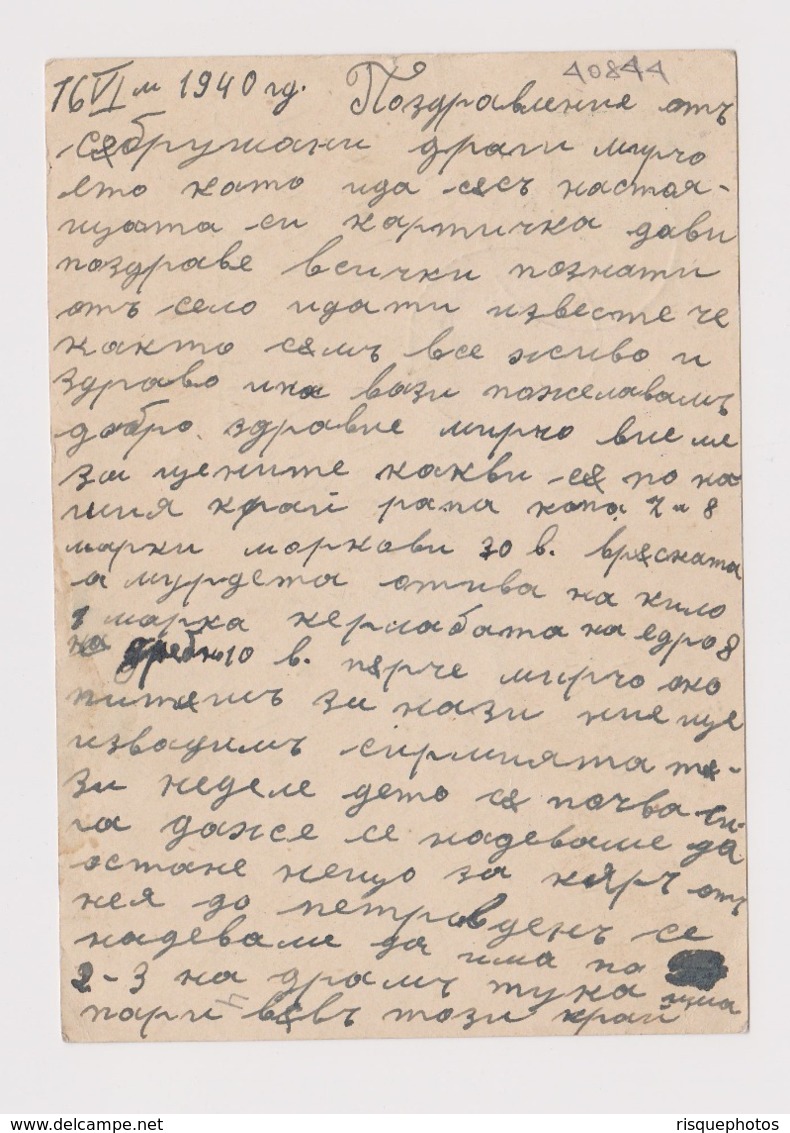 40844
16 VI м 1940 гд. Поздравления отъ
сѫбрушани драги мирчо
ето като ида сѫсъ настоя-
щата си картичка дави
поздраве всички познати
отъ село идати известе че
както сѫмъ все живо и
здраво и на вази пожелавамъ
добро здравие мирчо вие ме
за цените какви сѫ по на
шия край рапа копа 7-8
марки моркови 30 в. врѫската
а мурдета отива на кило
1 марка керлабата на едро 8
на дребно 10 в. пѫрче мирчо око
питѫшъ за нази ние ще
извадимъ сирмията тѫ-
зи неделе дето сѫ почва си-
га даже се надеваме да
остане нещо за кяръ отъ
нея до петровденъ се
надеваме да има по
2-3 на драмъ тука има
пари вѫвъ този край
delcampe.net
risquephotos